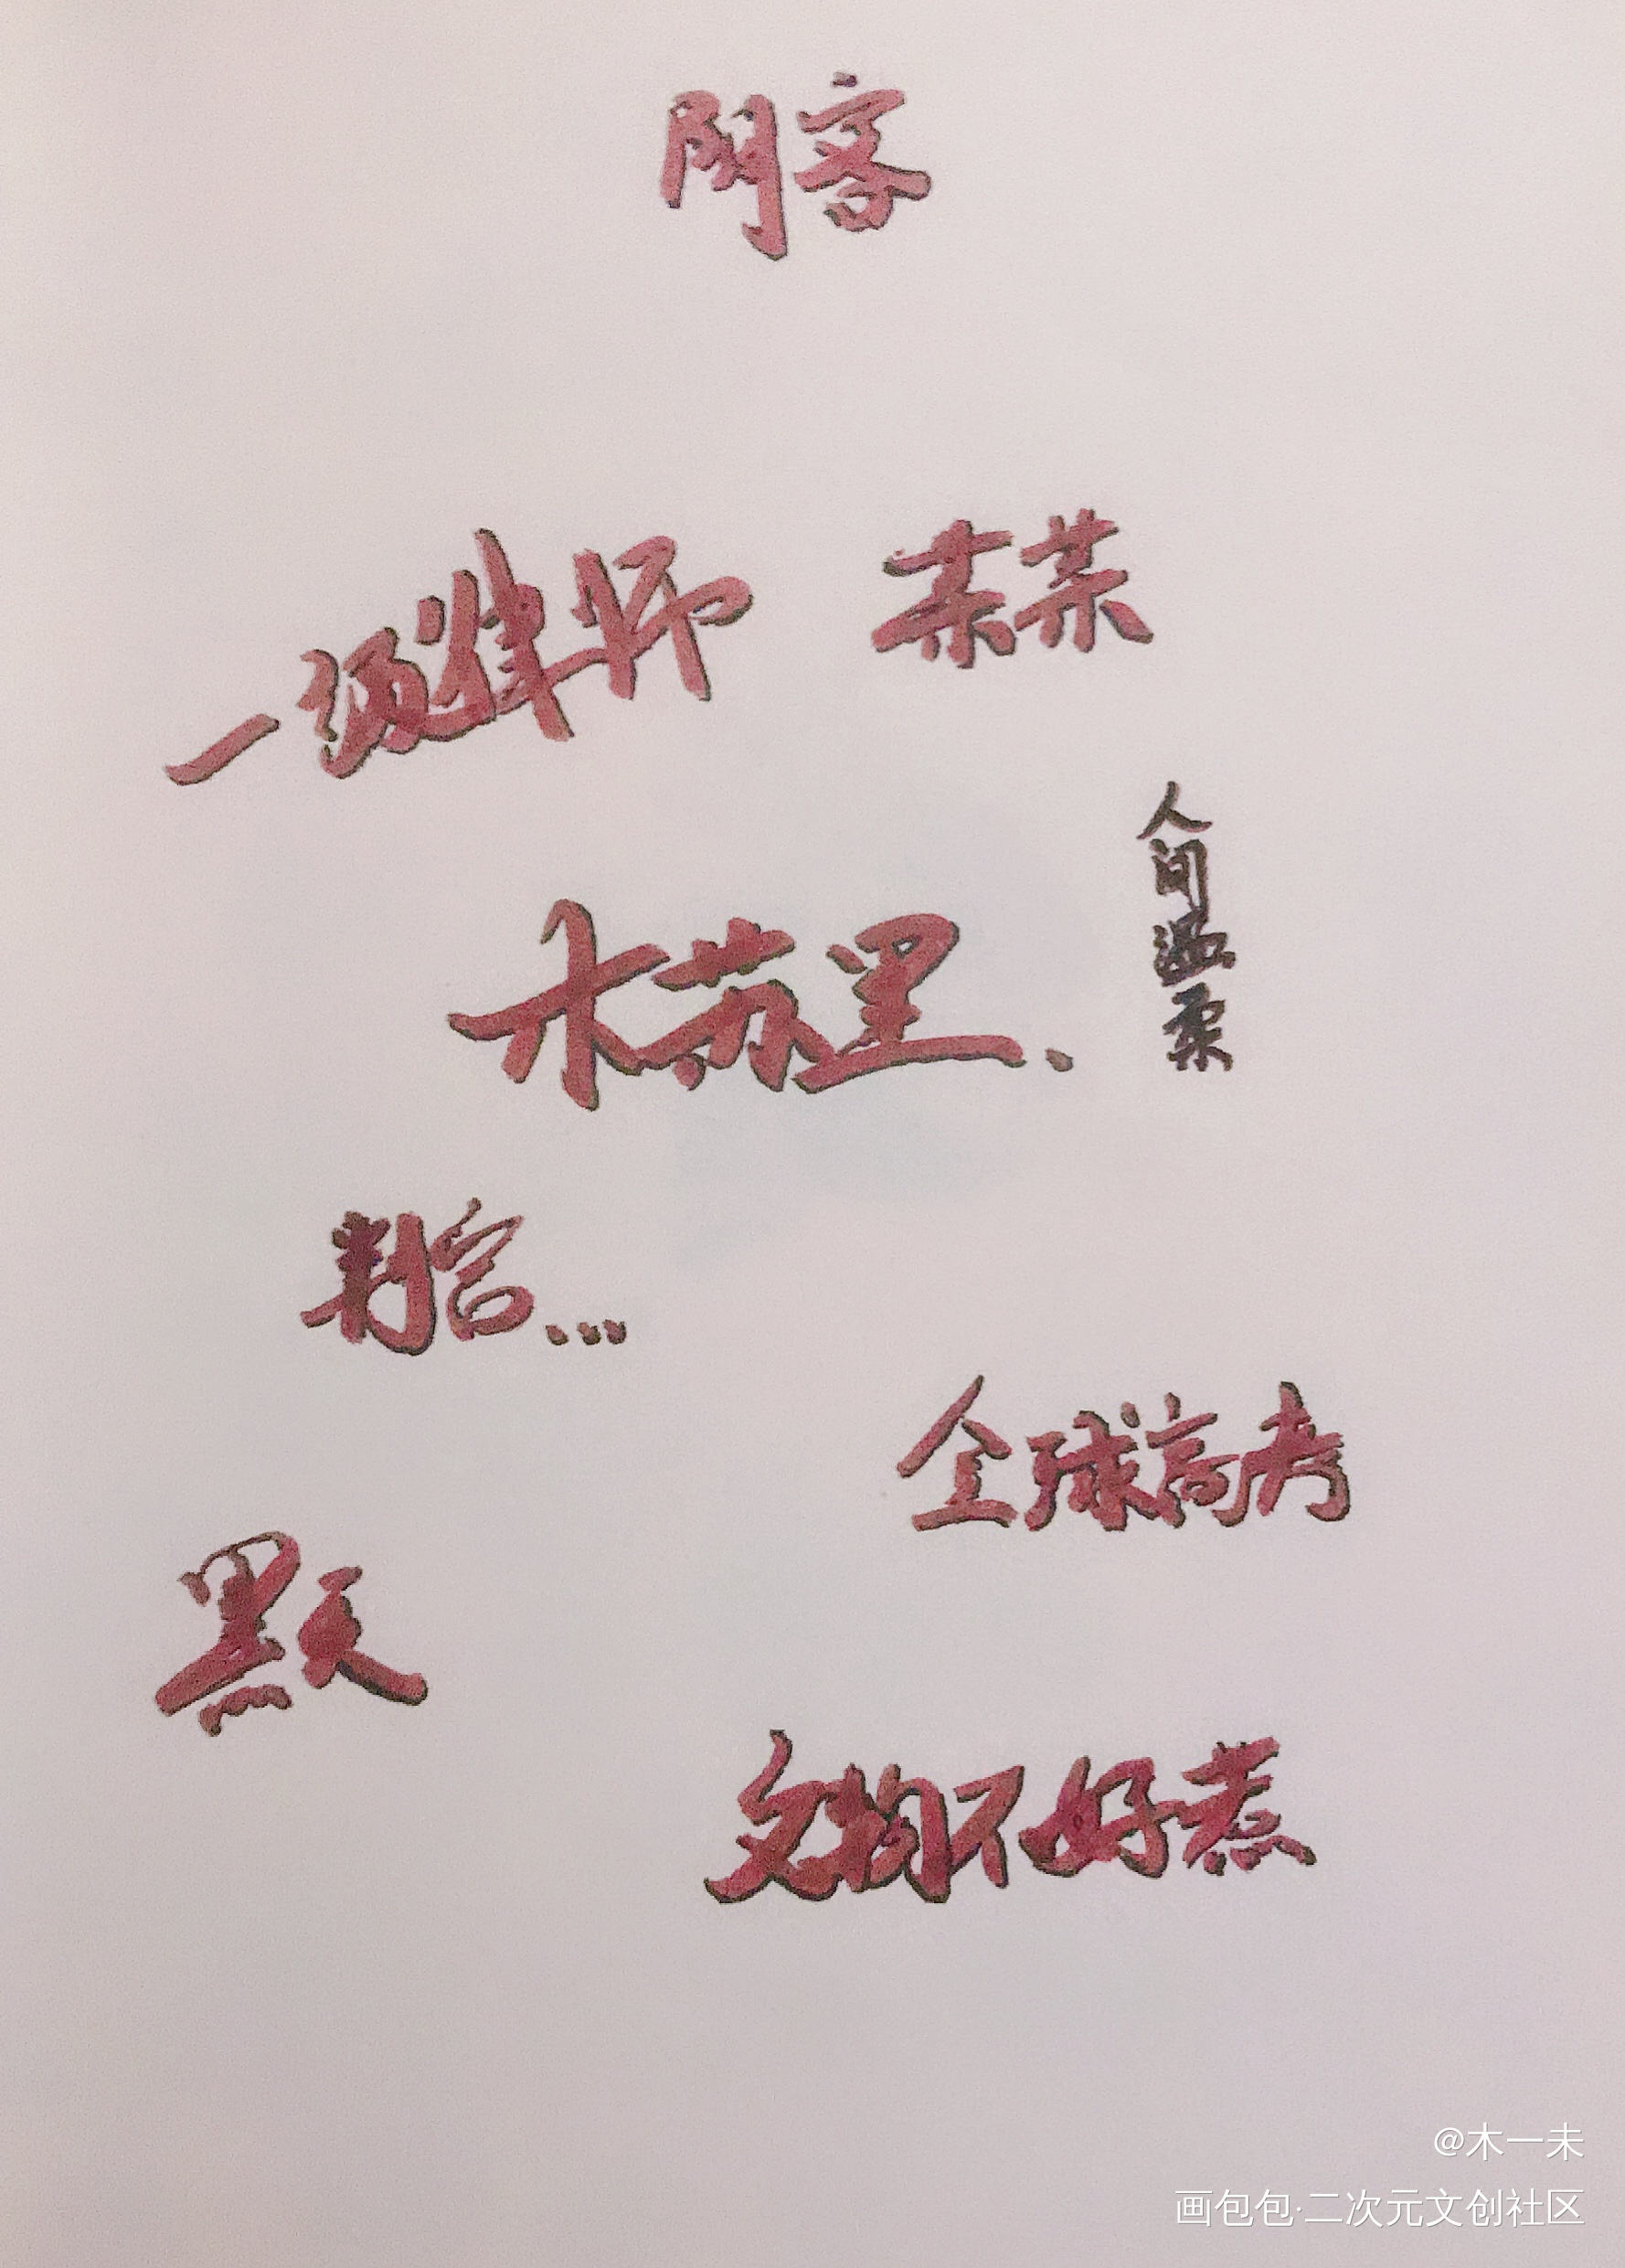 客
一级律师 某某
人间温柔
木苏里、
判官...
全球高考
黑天
文物不好惹
@木一未
画包包·二次元文创社区